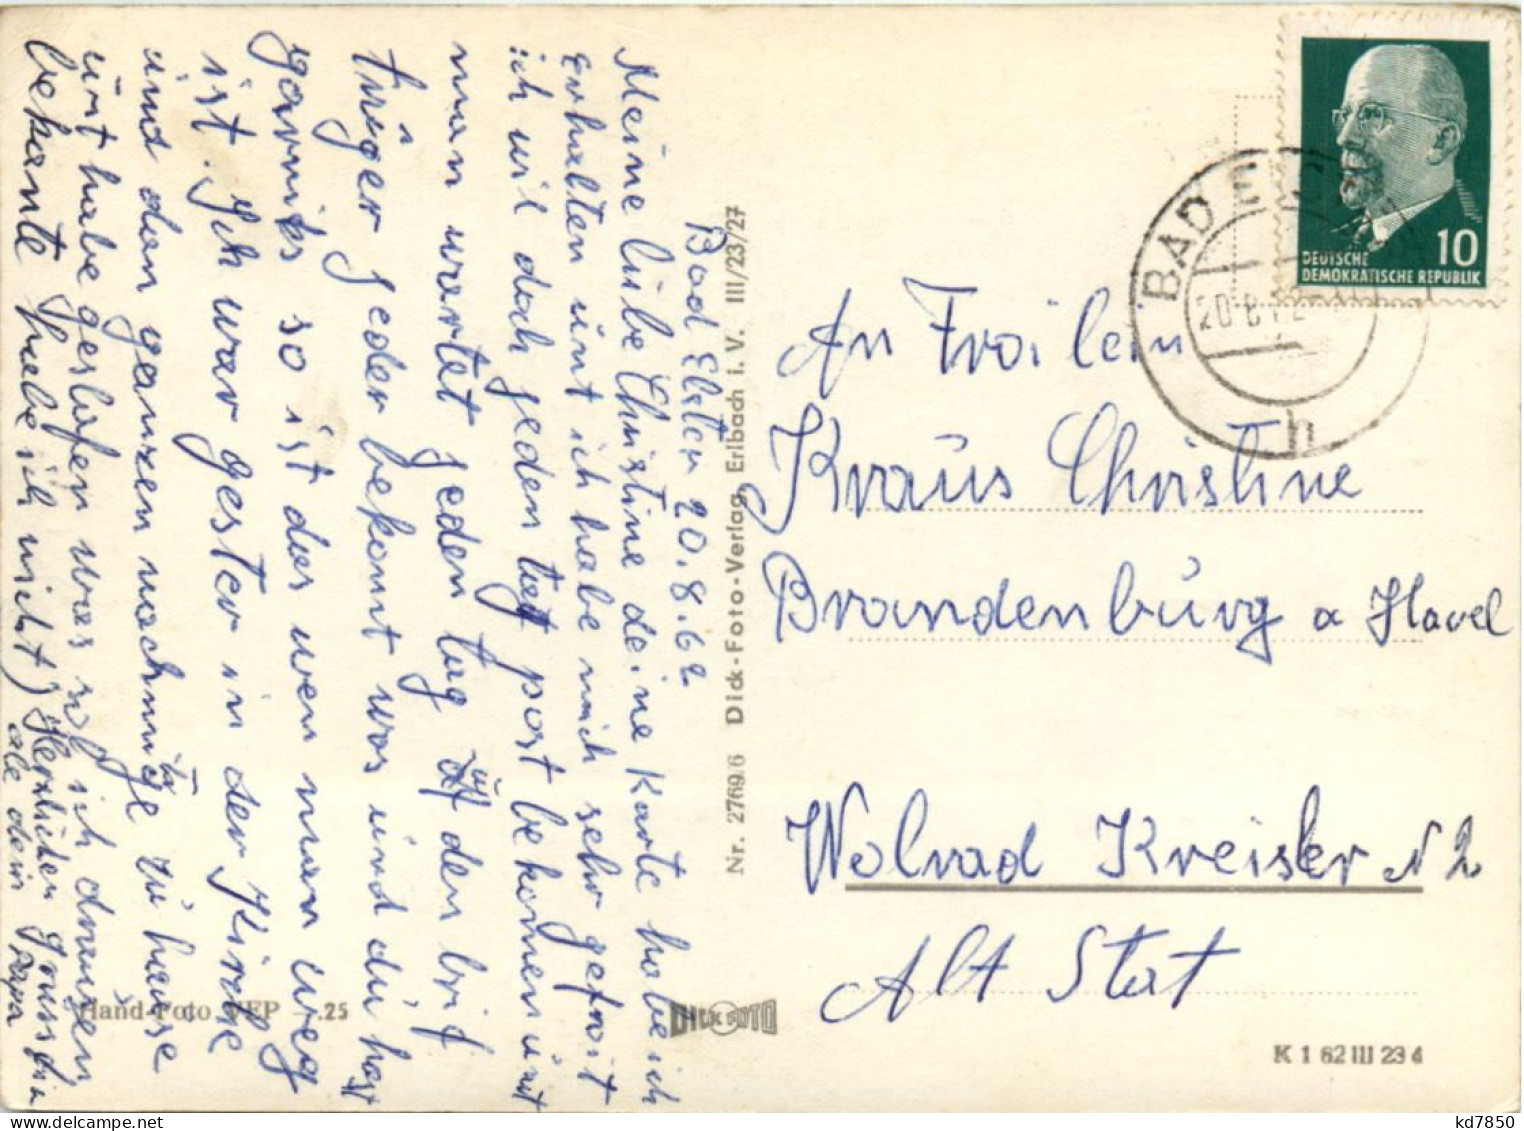 Bad Elster 20.8.62
Meine libe Christine deine Karte habe ich
Erhalten unt ich habe mich sehr gefroit
ich wil doch jeden tag post bekomen unt
man wartet jeden tag auf den brif
träger jeder bekomt was und du hast
garniks so ist das wen man weg
ist. Ich war gester in der Kirche
und dan ganzen nachmitage zu hause
unt habe geslafen was sol ich draussen
bekante habe ich nicht, Herzlichen gruss
ale dein Papa
Nr. 27696 Dick-Foto-Verlag, Erlbach i. V. III/23/27
DICK FOTO
Hand-Foto VEP .25
DEUTSCHE
DEMOKRATISCHE REPUBLIK
10
BAD
h
An Froilein
Kraus Christine
Brandenburg a Havel
Wolrad Kreisler N 2
Alt Stat
K 1 62 III 23 4
kd7850